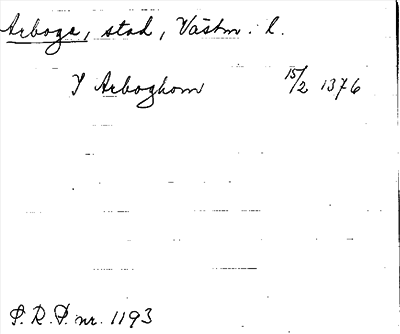 Arboga, stad, Västm. l.
I Arboghom 15/2 1376
S.R.P. nr. 1193